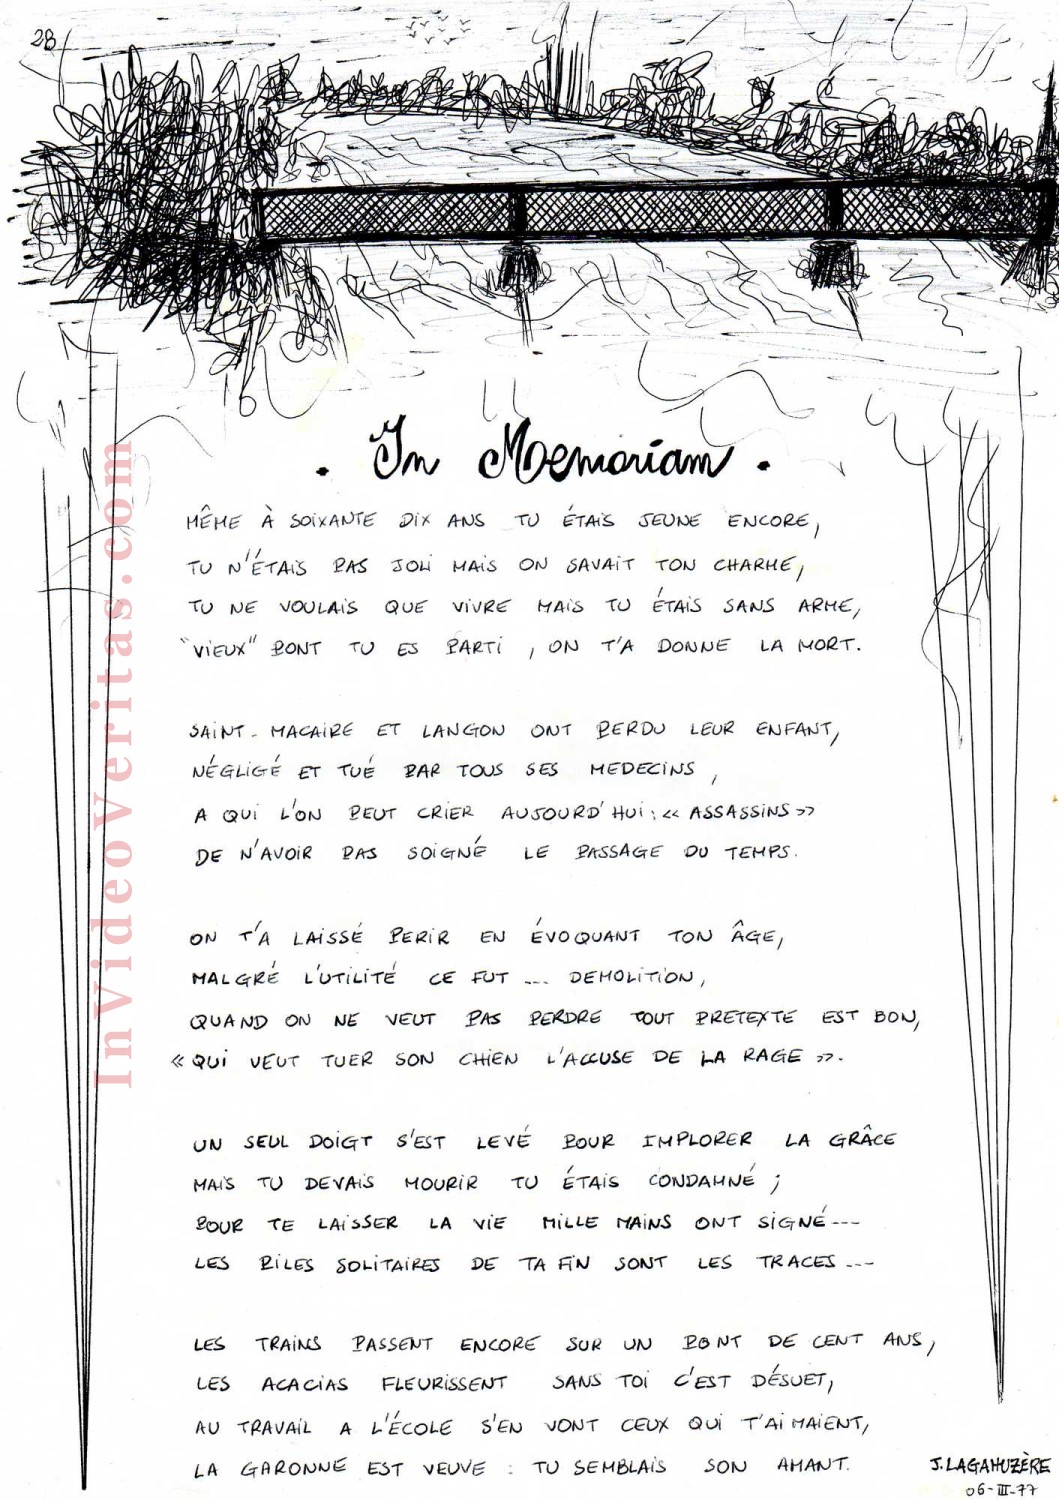 28
. In Moemoriam .
MÊME À SOIXANTE DIX ANS TU ÉTAIS JEUNE ENCORE,
TU N'ÉTAIS PAS JOLI MAIS ON SAVAIT TON CHARME,
TU NE VOULAIS QUE VIVRE MAIS TU ÉTAIS SANS ARME,
"VIEUX" PONT TU ES PARTI, ON T'A DONNE LA MORT.
SAINT-MACAIRE ET LANGON ONT PERDU LEUR ENFANT,
NÉGLIGÉ ET TUÉ PAR TOUS SES MEDECINS,
A QUI L'ON PEUT CRIER AUJOURD'HUI : « ASSASSINS »
DE N'AVOIR PAS SOIGNÉ LE PASSAGE DU TEMPS.
ON T'A LAISSÉ PERIR EN ÉVOQUANT TON ÂGE,
MALGRÉ L'UTILITÉ CE FUT ... DEMOLITION,
QUAND ON NE VEUT PAS PERDRE TOUT PRETEXTE EST BON,
« QUI VEUT TUER SON CHIEN L'ACCUSE DE LA RAGE ».
UN SEUL DOIGT S'EST LEVÉ POUR IMPLORER LA GRÂCE
MAIS TU DEVAIS MOURIR TU ÉTAIS CONDAMNÉ ;
POUR TE LAISSER LA VIE MILLE MAINS ONT SIGNÉ...
LES PILES SOLITAIRES DE TA FIN SONT LES TRACES...
LES TRAINS PASSENT ENCORE SUR UN PONT DE CENT ANS,
LES ACACIAS FLEURISSENT SANS TOI C'EST DÉSUET,
AU TRAVAIL A L'ÉCOLE S'EN VONT CEUX QUI T'AIMAIENT,
LA GARONNE EST VEUVE : TU SEMBLAIS SON AMANT.
J. LAGAHUZÈRE
06-III-77
InVideoVeritas.com